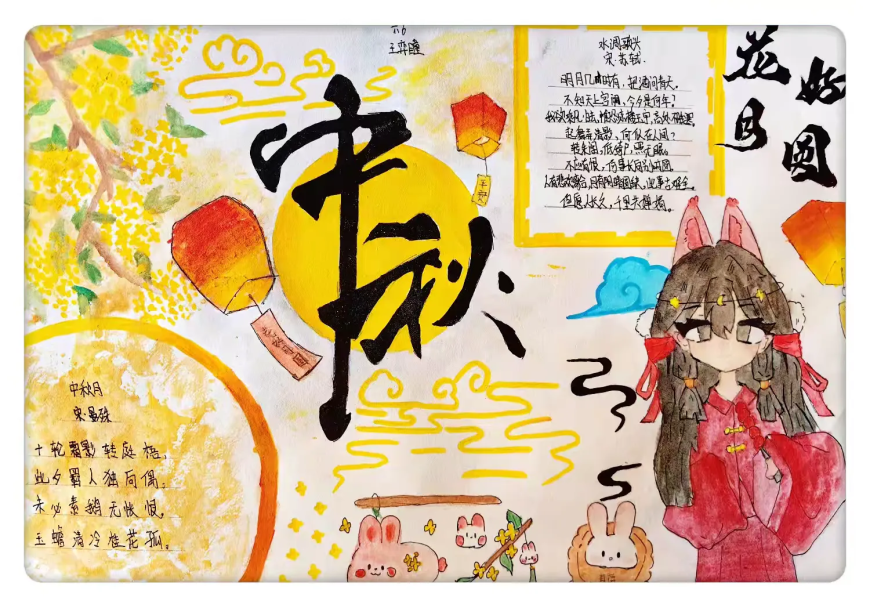 水调歌头
宋·苏轼
明月几时有，把酒问青天。
不知天上宫阙，今夕是何年？
我欲乘风归去，惟恐琼楼玉宇，高处不胜寒，
起舞弄清影，何似在人间？
转朱阁，低绮户，照无眠。
不应有恨，何事长向别时圆
人有悲欢离合，月有阴晴圆缺，此事古难全。
但愿人长久，千里共婵娟。
花好
月圆
中秋
中秋
中秋月
宋·晏殊
十轮霜影转庭梧，
此夕羁人独向隅。
未必素娥无怅恨，
玉蟾清冷桂花孤。